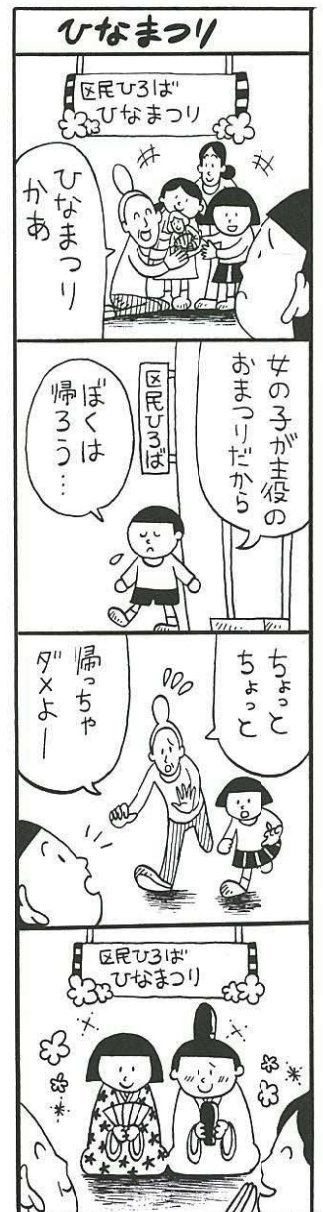 ひなまつり
区民ひろば
ひなまつり
ひなまつり
かあ
女の子が主役の
おまつりだから
区民ひろば
ぼくは
帰ろう…
ちょっと
ちょっと
帰っちゃ
ダメよー
区民ひろば
ひなまつり